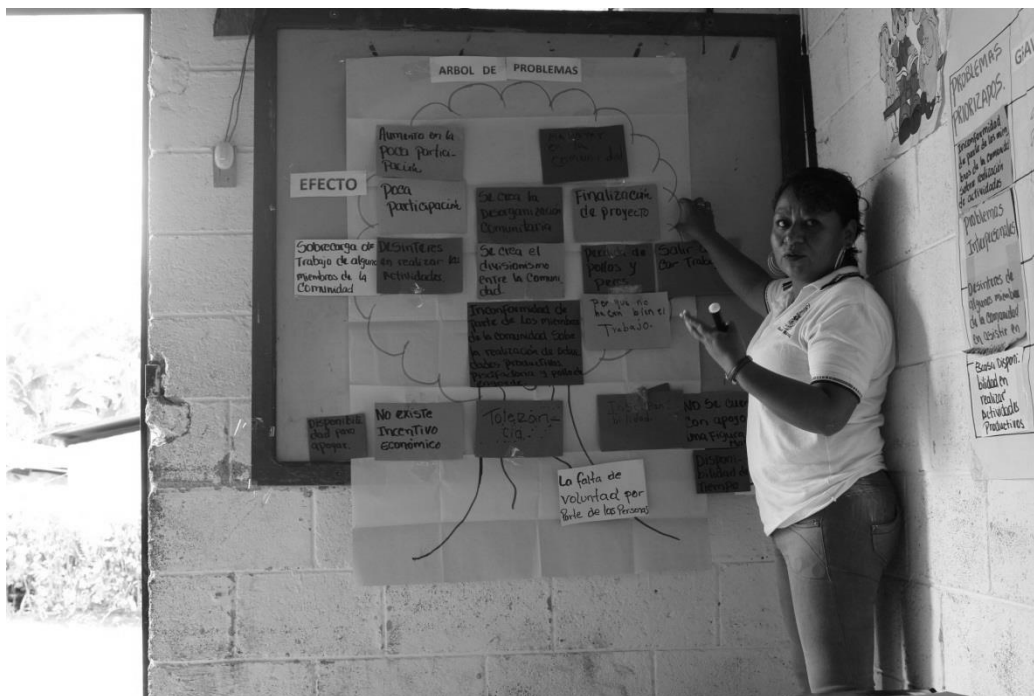 ARBOL DE PROBLEMAS
Aumento en la
poca partici-
pación
en la
comunidad
EFECTO
Poca
participación
Se crea la
Desorganización
Comunitaria
Finalización
de proyecto
Sobrecarga de
Trabajo de algunos
miembros de la
Comunidad
Desinteres
en realizar las
Actividades
Se crea el
divisionismo
entre la Comuni
dad
pollos y
Salir
Inconformidad de
parte de los miembros
de la comunidad Sobre
la realización de activi
dades productivas
Por que no
hacen bien el
Trabajo.
Disponibili
dad para
apoyar.
NO existe
Incentivo
Económico
Toleran-
cia.
NO Se cuen
con apoyo
una Figura
Disponi
bilidad de
Tiempo
La falta de
voluntad por
Parte de las Personas
PROBLEMAS
PRIORIZADOS.
Inconformidad
de parte de los miem
bros de la comunidad
sobre realización
de actividades
Problemas
Interpersonales
Desinteres de
algunos miembros
de la comunidad
en asistir en
Escasa Disponi-
bilidad en
realizar
Actividades
Productivas